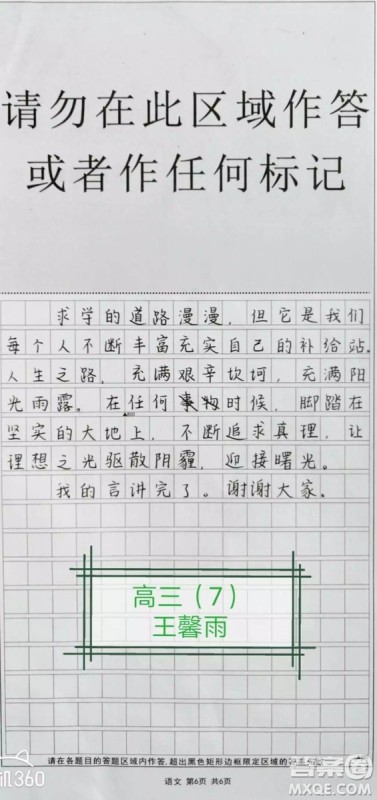 请勿在此区域作答
或者作任何标记
求学的道路漫漫，但它是我们
每个人不断丰富充实自己的补给站。
人生之路，充满艰辛坎坷，充满阳
光雨露。在任何事物时候，脚踏在
坚实的大地上，不断追求真理，让
理想之光驱散阴霾，迎接曙光。
我的言讲完了。谢谢大家。
高三（7）
王馨雨
请在各题目的答题区域内作答，超出黑色矩形边框限定区域的
语文 第6页 共6页
机360
答案圈
MXQE.COM